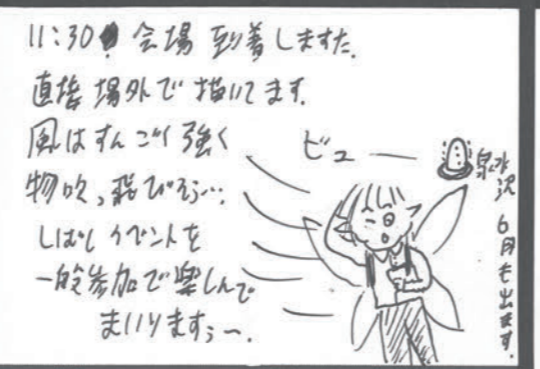 11:30 会場 到着しますた.
直接 場外で 描いてます.
風はすんごく 強く
物吹っ飛びそう…
しばしイベントを
一般参加で楽しんで
まいりますぅ〜.
ビュー
泉水沢 6月も出ます.